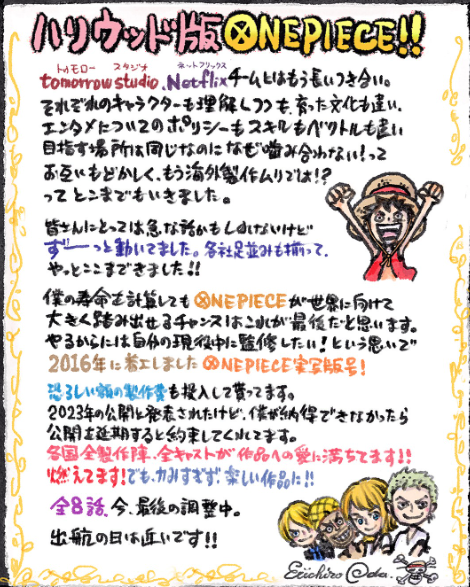 ハリウッド版ONEPIECE!!
トゥモロー スタジオ ネットフリックス
tomorrow studio、Netflixチームとはもう長いつき合い。
それぞれのキャラクターも理解しつつも、育った文化も違い、
エンタメについてのポリシーもスキルもベクトルも違い
目指す場所は同じなのになぜ噛み合わない!って
お互いもどかしく、もう海外製作ムリでは!?
ってとこまでもいきました。
皆さんにとっては急な話かもしれないけど
ずーーっと動いてました。各社足並みも揃って、
やっとここまできました!!
僕の寿命を計算してもONEPIECEが世界に向けて
大きく踏み出せるチャンスはこれが最後だと思います。
やるからには自分の現役中に監修したい!という思いで
2016年に着工しましたONEPIECE実写版号!
恐ろしい額の製作費も投入して貰ってます。
2023年の公開と発表されたけど、僕が納得できなかったら
公開を延期すると約束してくれてます。
各国全製作陣、全キャストが作品への愛に満ちてます!!
燃えてます!でも、力みすぎず、楽しい作品に!!
全8話、今、最後の調整中。
出航の日は近いです!!
Eiichiro Oda.